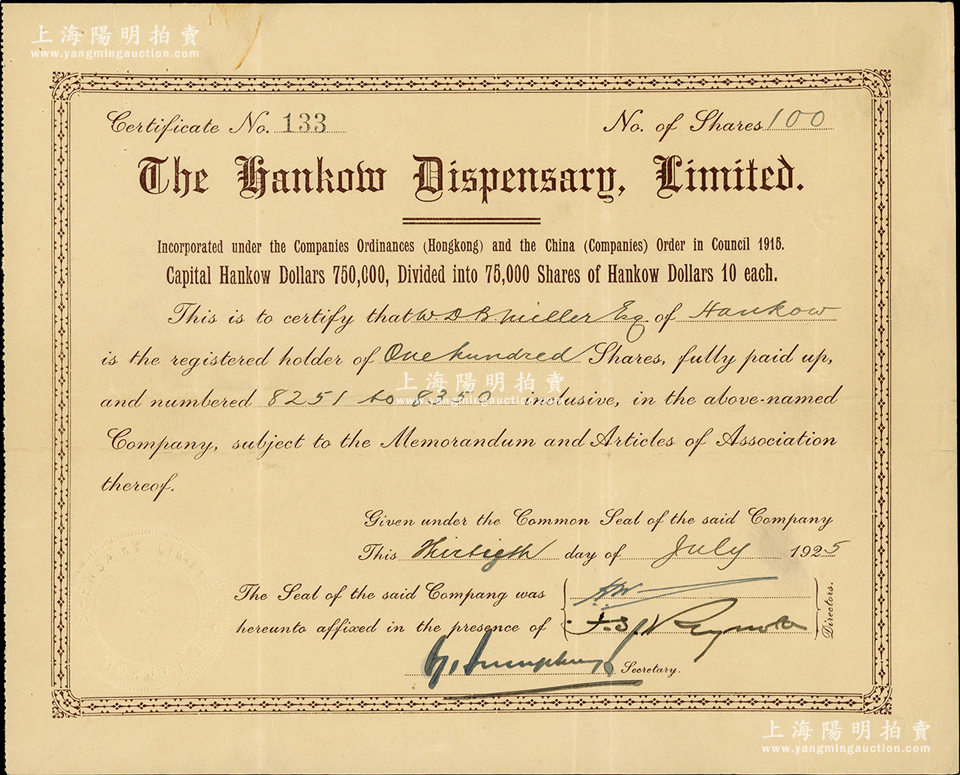 上海陽明拍賣
www.yangmingauction.com
Certificate No. 133 No. of Shares 100
The Hankow Dispensary, Limited.
Incorporated under the Companies Ordinances (Hongkong) and the China (Companies) Order in Council 1915.
Capital Hankow Dollars 750,000, Divided into 75,000 Shares of Hankow Dollars 10 each.
This is to certify that W. D. B. Miller Esq of Hankow
is the registered holder of One hundred Shares, fully paid up,
上海陽明拍賣
www.yangmingauction.com
and numbered 8251 to 8350 inclusive, in the above-named
Company, subject to the Memorandum and Articles of Association
thereof.
Given under the Common Seal of the said Company
This Thirtieth day of July 1925
The Seal of the said Company was
hereunto affixed in the presence of
Directors.
Secretary.
上海陽明拍賣
www.yangmingauction.com